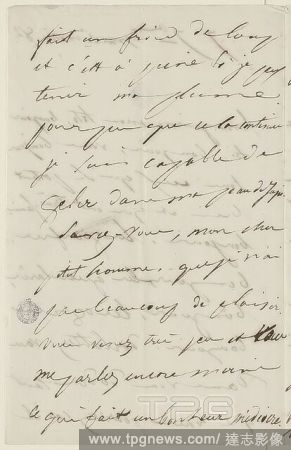 fait un froid de loup
et c'est à peine si je puis
tenir ma plume
pour peu que cela continue
je suis capable de
geler dans ma peau d'
Savez-vous, mon cher
petit homme, que je n'ai
pas beaucoup de plaisir
vous venez très peu et vous
me parlez encore moins
ce qui fait un bonheur médiocre,
TPG
www.tpgnews.com 達志影像